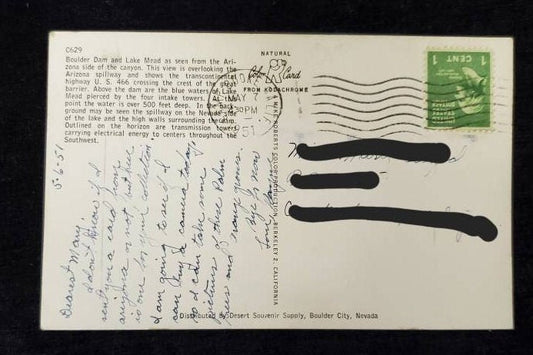 C629
Boulder Dam and Lake Mead as seen from the Ari-
zona side of the canyon. This view is overlooking the
Arizona spillway and shows the transcontinental
highway U. S. 466 crossing the crest of the great
barrier. Above the dam are the blue waters of Lake
Mead pierced by the four intake towers. At this
point the water is over 500 feet deep. In the back-
ground may be seen the spillway on the Nevada side
of the lake and the high walls surrounding the dam.
Outlined on the horizon are transmission towers
carrying electrical energy to centers throughout the
Southwest.
NATURAL
Color Card
FROM KODACHROME
MAY 7
PM
51
1 CENT 1
A MIKE ROBERTS COLOR PRODUCTION - BERKELEY 2, CALIFORNIA
5-6-51
Dearest Mary,
I don't know if I
sent you a card from
arizona or not but here
is one for your collection
I am going to see if I
can buy a camera today
so I can take some
pictures of these Palm
trees and
Bye for now
Love
Distributed by Desert Souvenir Supply, Boulder City, Nevada